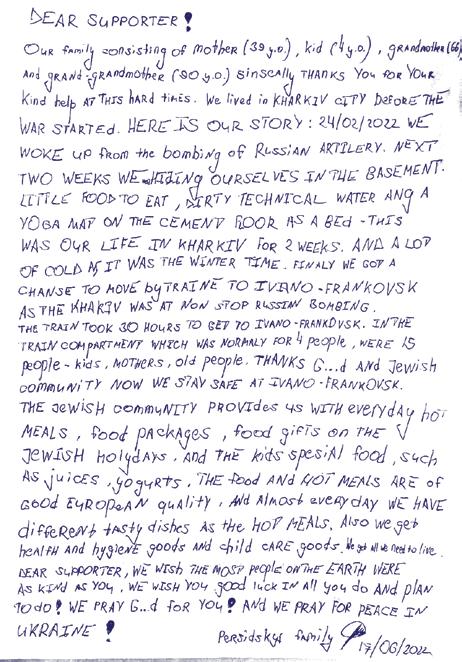 DEAR SUPPORTER!
Our family consisting of mother (39 y.o.), kid (4 y.o.), grandmother (66)
And grand-grandmother (90 y.o.) sinscally THANKS YOU FOR YOUR
Kind help AT THIS hard times. We lived in KHARKIV CITY BEFORE THE
WAR STARTED. HERE IS OUR STORY: 24/02/2022 WE
WOKE UP from the bombing of RUSSIAN ARTILERY. NEXT
TWO WEEKS WE HIDING OURSELVES IN THE BASEMENT.
LITTLE FOOD TO EAT, DIRTY TECHNICAL WATER AND A
YOGA MAT ON THE CEMENT FLOOR AS A BED - THIS
WAS OUR LIFE IN KHARKIV FOR 2 WEEKS. AND A LOT
OF COLD AS IT WAS THE WINTER TIME. FINALY WE GOT A
CHANSE TO MOVE by TRAINE TO IVANO-FRANKOVSK
AS THE KHARKIV WAS AT NON STOP RUSSIAN BOMBING.
THE TRAIN TOOK 30 HOURS TO GET TO IVANO-FRANKOVSK. IN THE
TRAIN COMPARTMENT WHICH WAS NORMALY FOR 4 people, WERE 15
people - kids, MOTHERS, old people. THANKS G...d AND Jewish
community NOW WE STAY SAFE AT IVANO-FRANKOVSK.
THE Jewish community PROVIDES US WITH everyday hot
MEALS, food packages, food gifts on THE
JEWISH HOLYDAYS, AND THE kids spesial food, such
AS juices, yogurts. THE food AND HOT MEALS ARE OF
GOOD EUROPEAN quality, AND Almost everyday WE HAVE
different tasty dishes AS the HOT MEALS. Also we get
health and hygiene goods and child CARE goods. We get all we need to live.
DEAR SUPPORTER, WE WISH THE MOST PEOPLE ON THE EARTH WERE
AS KIND AS YOU. WE WISH YOU good luck IN All you do AND plan
TO do! WE PRAY G...d for YOU! AND WE PRAY FOR PEACE IN
UKRAINE!
Persidskys family 17/06/2022